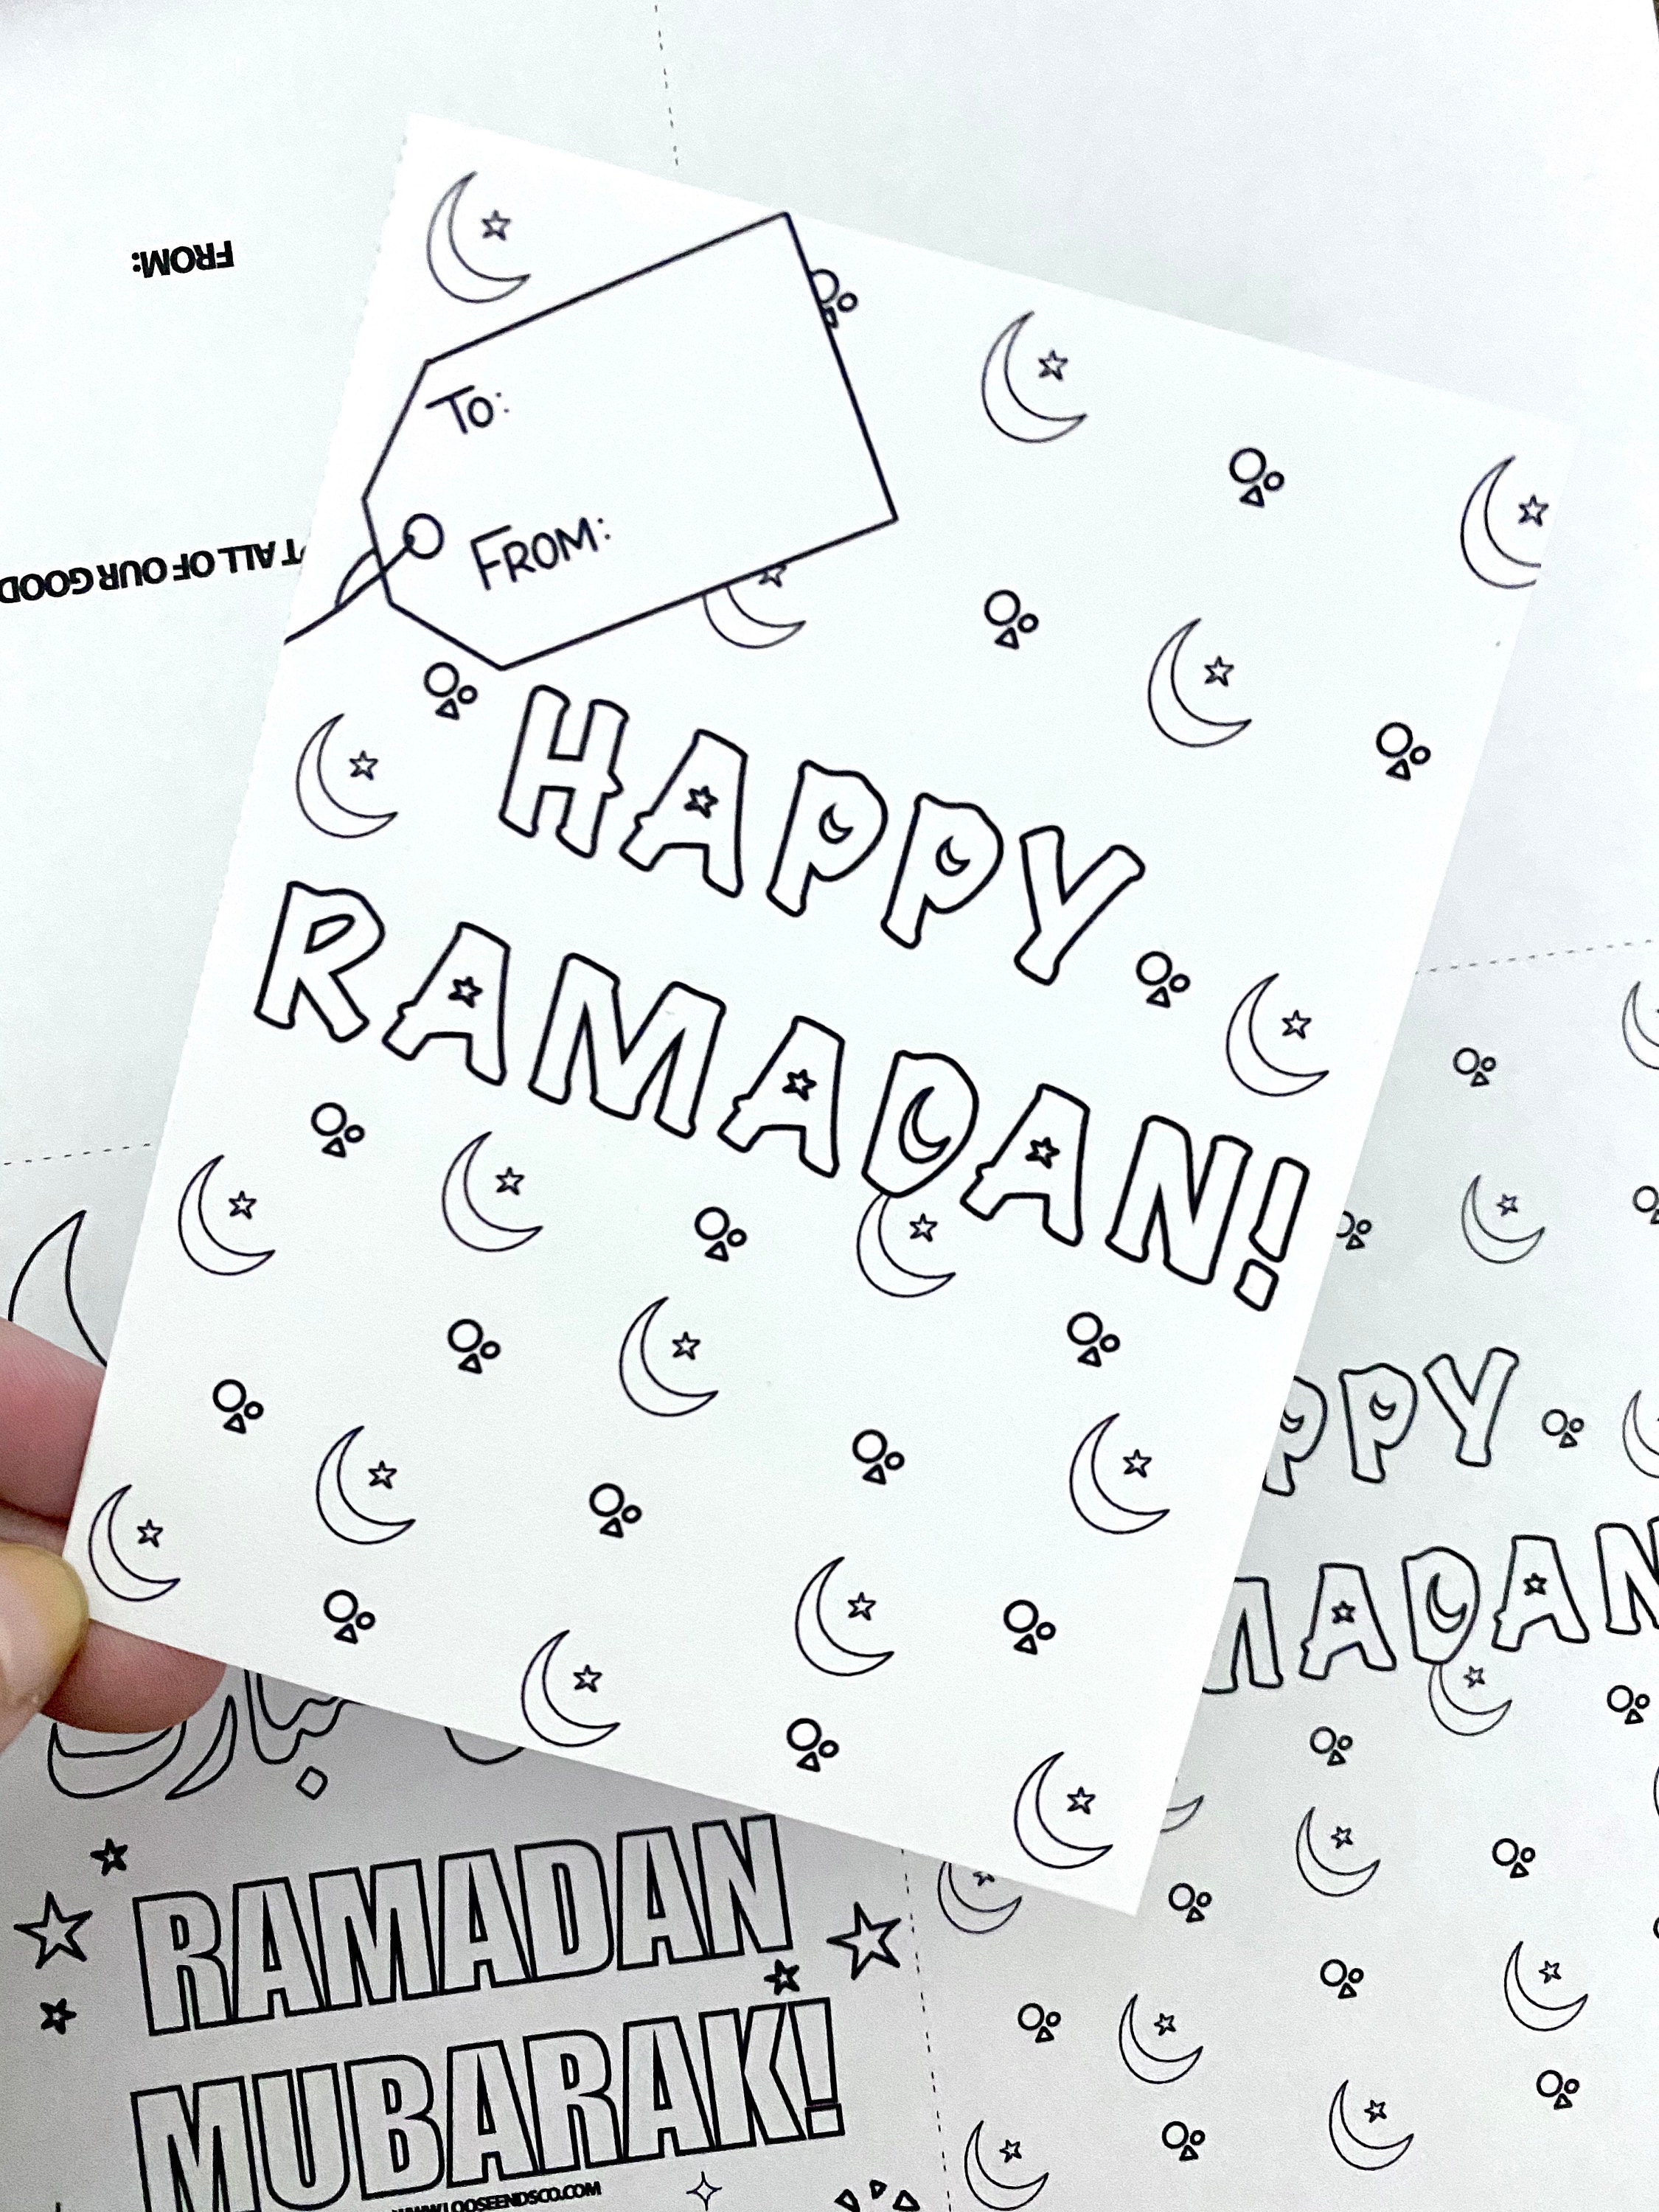 FROM:
T ALL OF OUR GOOD
To:
FROM:
HAPPY
RAMADAN!
PPY
MADAN
مبارك
RAMADAN
MUBARAK!
WWW.LOOSEENDSCO.COM